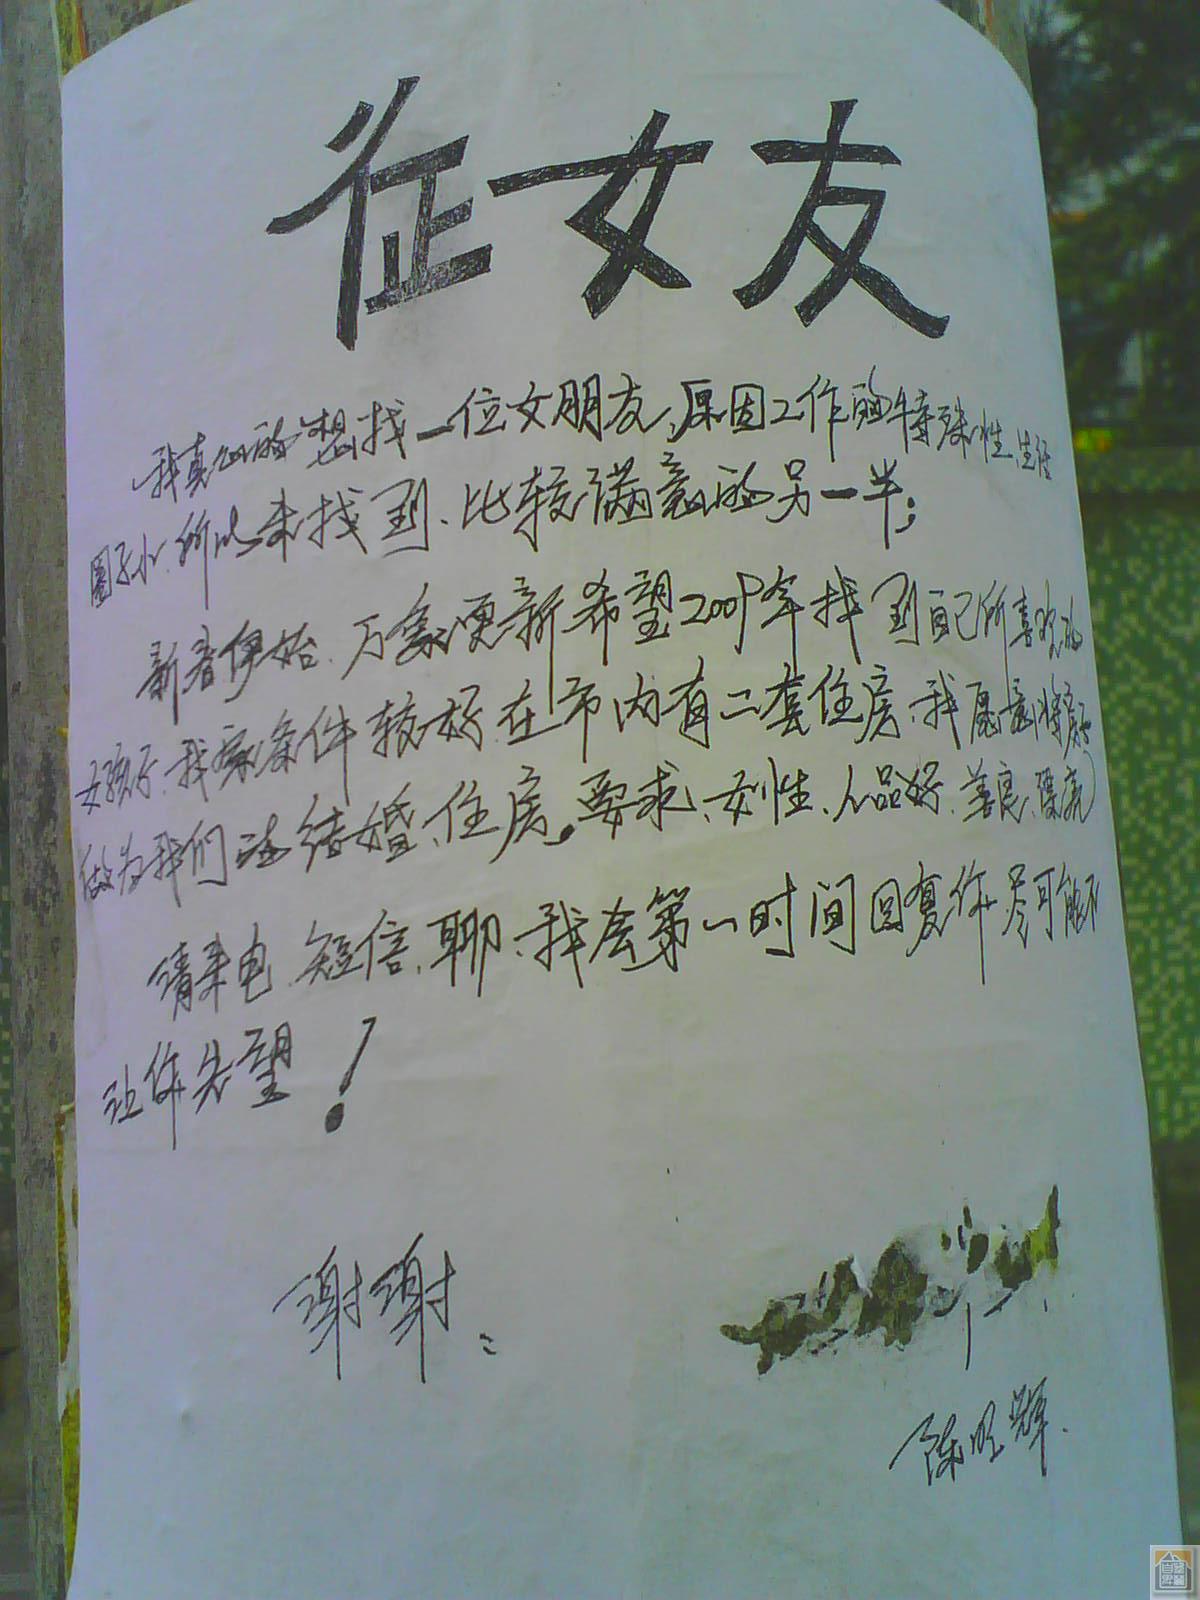 征女友
我真心的想找一位女朋友、原因工作的特殊性、生活
圈子小、所以未找到、比较满意的另一半;
新春伊始、万象更新希望2009年找到自己所喜欢的
女孩子、我家条件较好、在市内有二套住房、我愿意将
做为我们 结婚、住房。要求、女性、人品好、善良、漂亮
请来电、短信、聊、我会第一时间回复你 尽可能不
让你失望!
谢谢
陈旺辉.